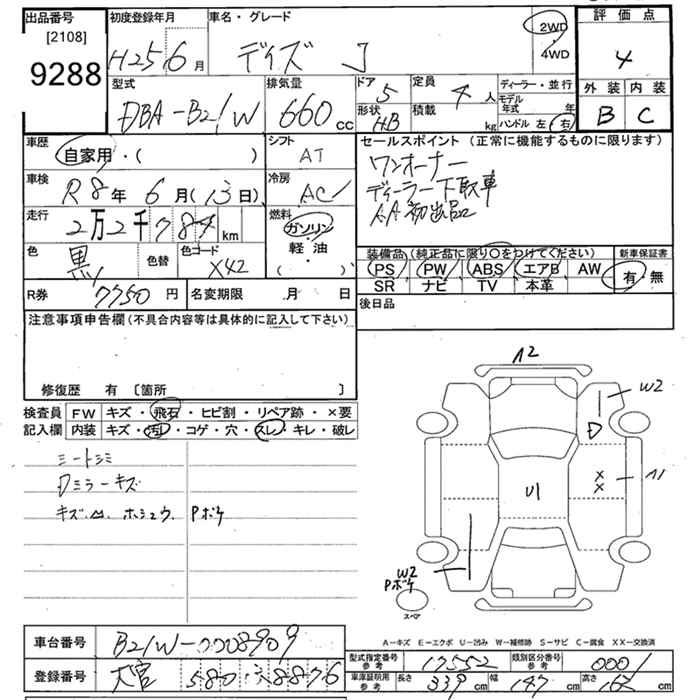 出品番号
[2108]
9288
初度登録年月
H25 6月
車名・グレード
デイズ J
2WD
・
4WD
評価点
4
外装 内装
B C
型式
DBA-B21W
排気量
660 cc
ドア 5
形状 HB
定員 4 人
積載 kg
ディーラー・並行
モデル年式 年
ハンドル 左 右
車歴
自家用・( )
車検
R8年 6月(13日)
走行
2万2千787 km
色
黒 色替
色コード
X42
シフト
AT
冷房
AC
燃料
ガソリン
・
軽油
・
( )
セールスポイント (正常に機能するものに限ります)
ワンオーナー
ディーラー下取車
AA初出品
装備品(純正品に限り○をつけてください)
PS PW ABS エアB AW
SR ナビ TV 本革
新車保証書
有 無
後日品
R券 7750円
名変期限 月 日
注意事項申告欄(不具合内容等は具体的に記入して下さい)
修復歴 有 〔箇所 〕
検査員
記入欄
FW キズ・飛石・ヒビ割・リペア跡・×要
内装 キズ・汚レ・コゲ・穴・スレ・キレ・破レ
シートシミ
Dミラーキズ
キズ.凹 ホシュウ. Pボケ
A2
W2
D
××
A1
U1
W2
Pボケ
スペア
A−キズ E−エクボ U−凹み W−補修跡 S−サビ C−腐食 XX−交換済
車台番号 B21W-0008909
登録番号 大宮 580
型式指定番号
参考
17552
類別区分番号
参考
0001
車庫証明用
参考
長さ 339 cm 幅 147 cm 高さ 162 cm